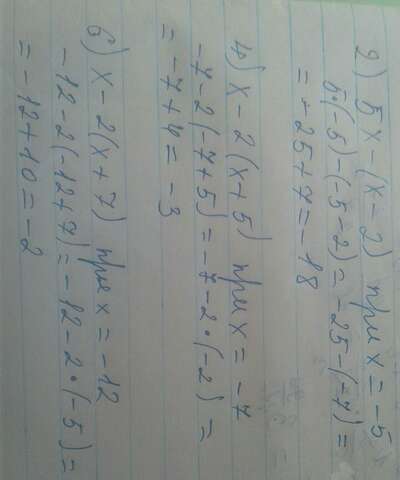 2) 5x-(x-2) при x=-5
5·(-5)-(-5-2)=-25-(-7)=
=-25+7=-18
4) x-2(x+5) при x=-7
-7-2(-7+5)=-7-2·(-2)=
=-7+4=-3
6) x-2(x+7) при x=-12
-12-2(-12+7)=-12-2·(-5)=
=-12+10=-2